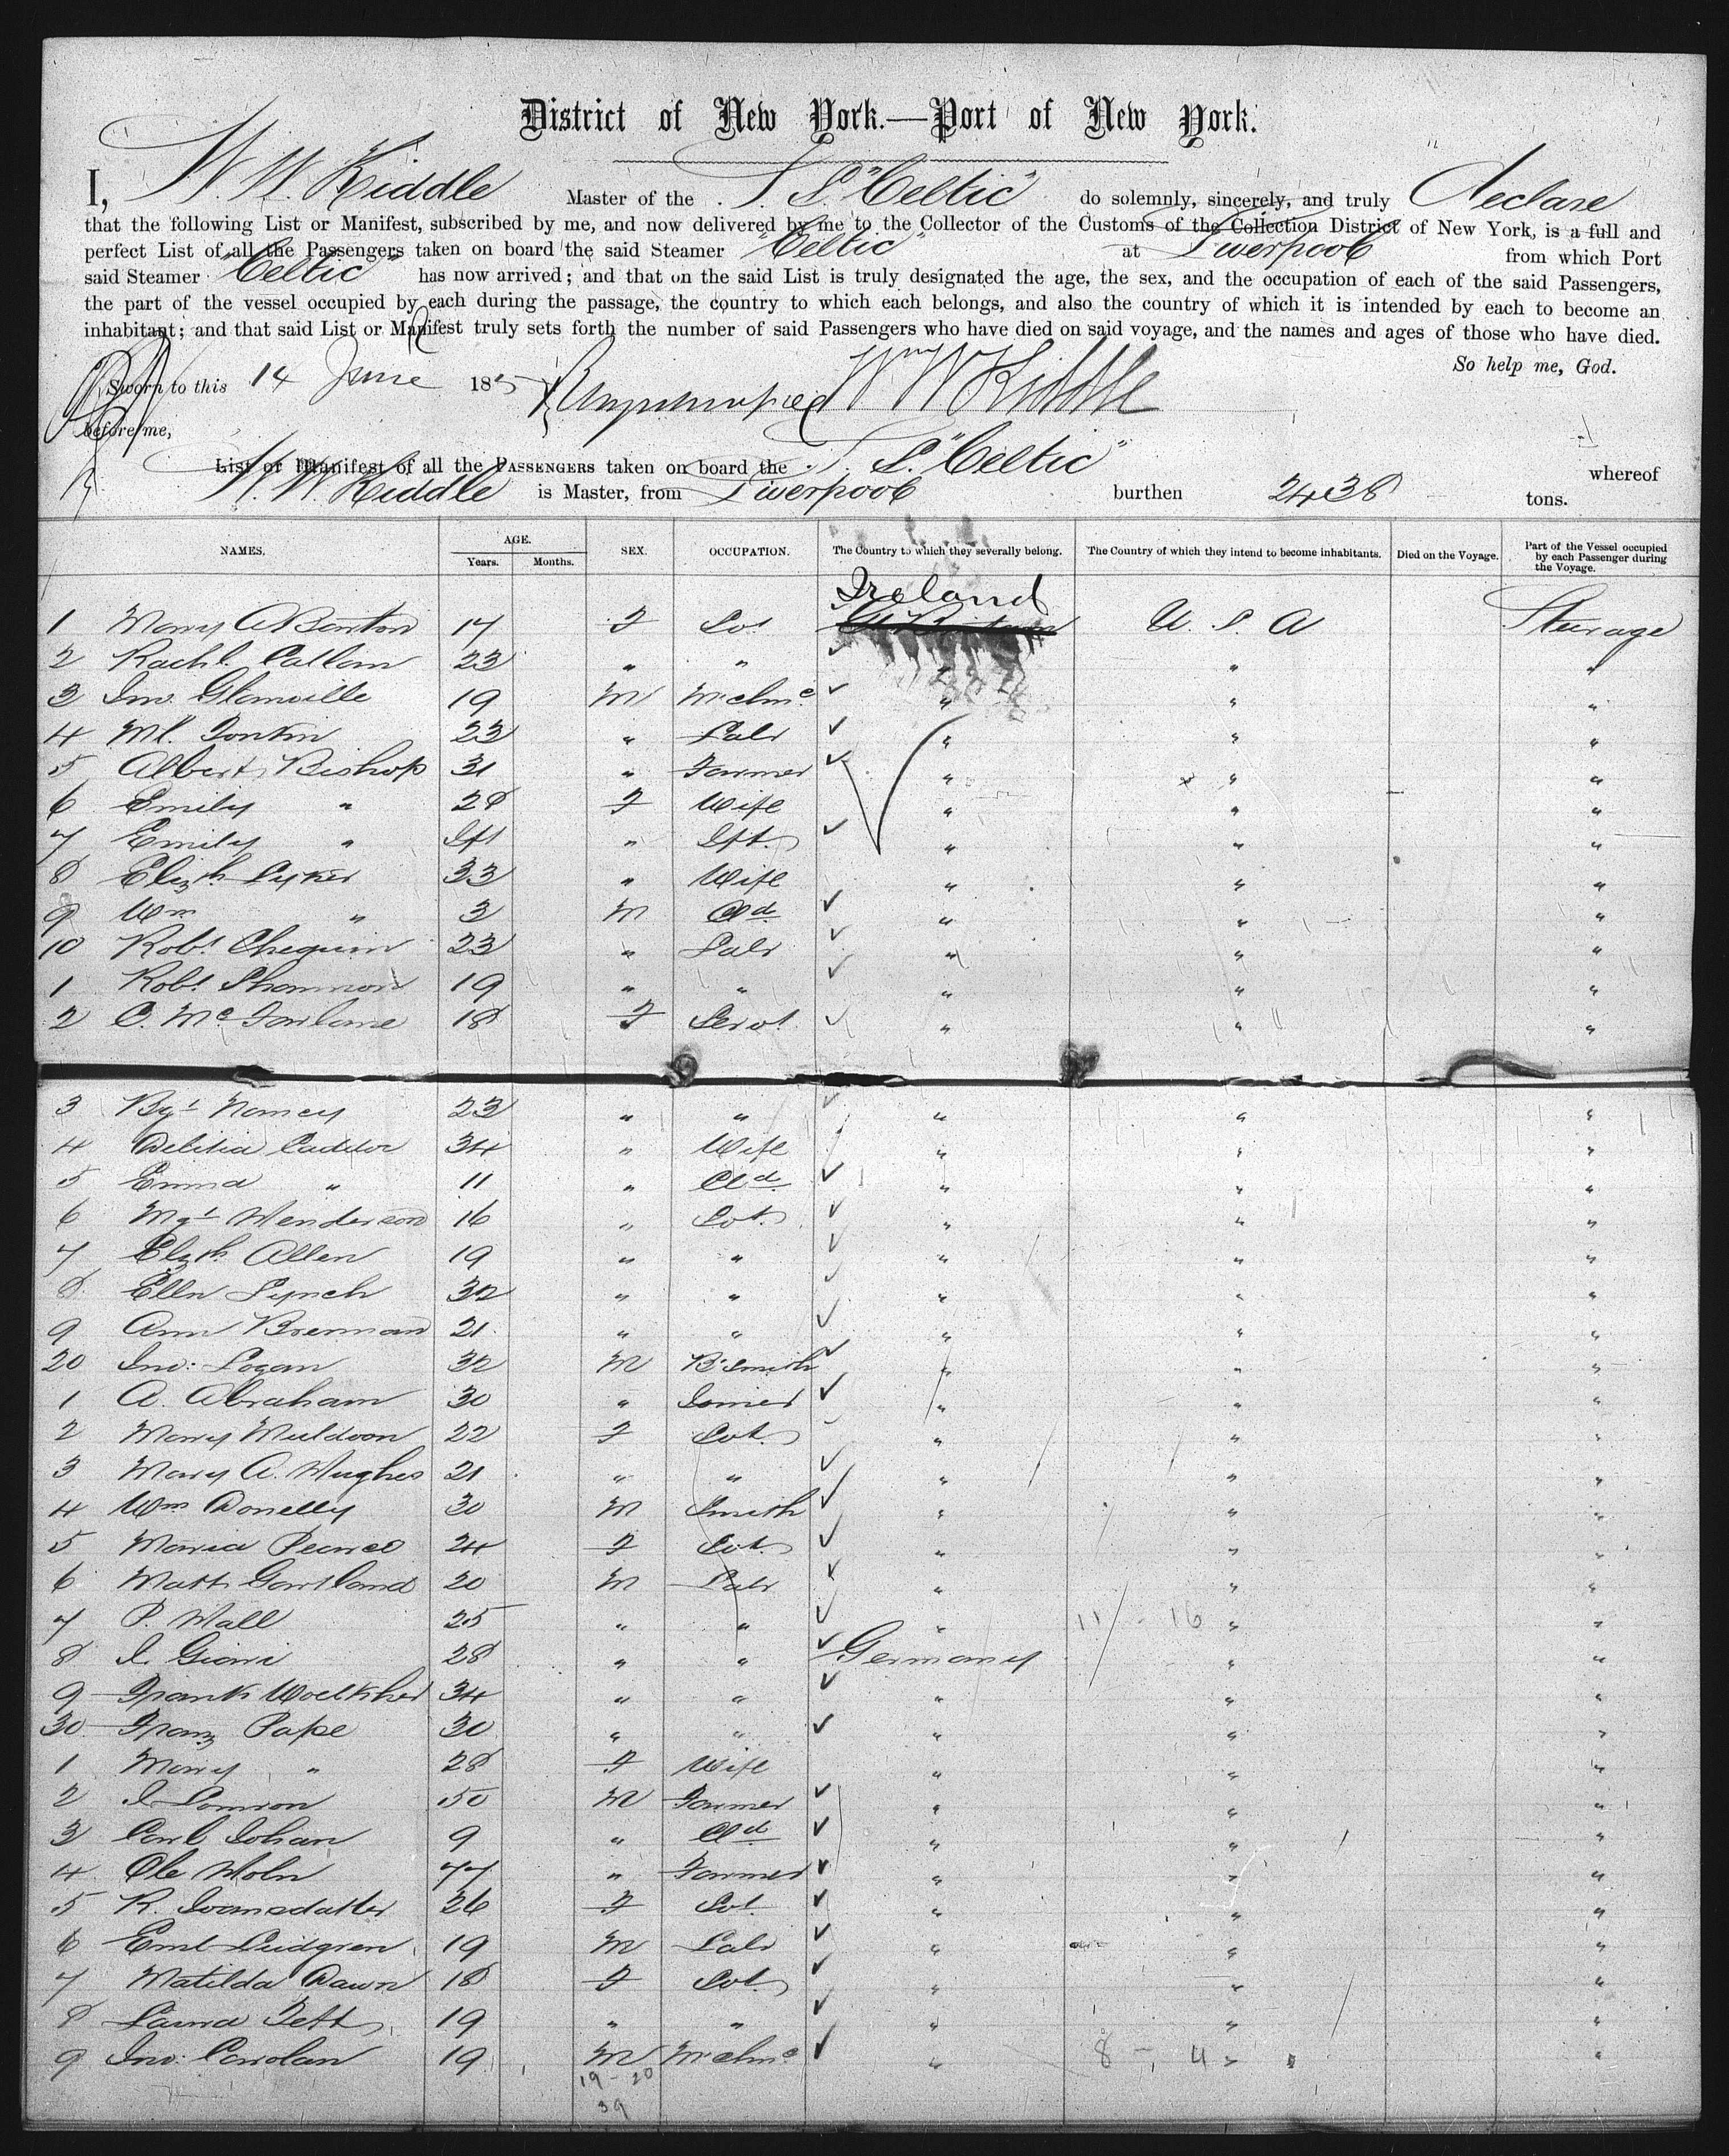 District of New York.—Port of New York.
I, W. W. Kiddle Master of the S. S. "Celtic" do solemnly, sincerely, and truly declare
that the following List or Manifest, subscribed by me, and now delivered by me to the Collector of the Customs of the Collection District of New York, is a full and
perfect List of all the Passengers taken on board the said Steamer "Celtic" at Liverpool from which Port
said Steamer "Celtic" has now arrived; and that on the said List is truly designated the age, the sex, and the occupation of each of the said Passengers,
the part of the vessel occupied by each during the passage, the country to which each belongs, and also the country of which it is intended by each to become an
inhabitant; and that said List or Manifest truly sets forth the number of said Passengers who have died on said voyage, and the names and ages of those who have died.
So help me, God.
Sworn to this 14 June 18 Wm W Kiddle
before me,
List or Manifest of all the PASSENGERS taken on board the S. S. "Celtic" whereof
W. W. Kiddle is Master, from Liverpool burthen 2438 tons.
NAMES. AGE. Years. Months. SEX. OCCUPATION. The Country to which they severally belong. The Country of which they intend to become inhabitants. Died on the Voyage. Part of the Vessel occupied by each Passenger during the Voyage.
Ireland
1 Mary A Barton 17 F Svt U. S. A Steerage
2 Rachl. Callam 23 " " " " "
3 Jno. Glanville 19 M Mchnc " " "
4 Ml. 23 " Labr " " "
5 Albert Bishop 31 " Farmer " " "
6 Emily " 28 F Wife " " "
7 Emily " Ift " Ift. " " "
8 Elizth 33 " Wife " " "
9 Wm " 3 M Cld " " "
10 Robt 23 " Labr " " "
1 Robt Shannon 19 " " " " "
2 C. McFarlane 18 F Servt " " "
3 Bgt Nancy 23 " " " " "
4 34 " Wife " " "
5 Emma " 11 " Cld " " "
6 Mgt Henderson 16 " Svt. " " "
7 Elzth. Allen 19 " " " " "
8 Ellen Lynch 32 " " " " "
9 Ann Brennan 21 " " " " "
20 Jno: Logan 32 M B'smith " " "
1 A. Abraham 30 " Joiner " " "
2 Mary Muldoon 22 F Svt. " " "
3 Mary A. Hughes 21 " " " " "
4 Wm Donelly 30 M Smith " " "
5 Maria Pearce 24 F Svt. " " "
6 Matt Gartland 20 M Labr " " "
7 P. Wall 25 " " " 11 - 16 " "
8 I. Giani 28 " " Germany " "
9 Frank Woelkher 34 " " " " "
30 Franz Pape 30 " " " " "
1 Mary " 28 F Wife " " "
2 50 M Farmer " " "
3 Carl Johan 9 " Cld " " "
4 Ole Moln 47 " Farmer " " "
5 R. 26 F Svt " " "
6 Eml Lindgren 19 M Labr " " "
7 Matilda Dawn 18 F Svt. " " "
8 Laura 19 " " " " "
9 Jno: Carolan 19 M Mchnc " 8 - 4 " "
19 - 20
39